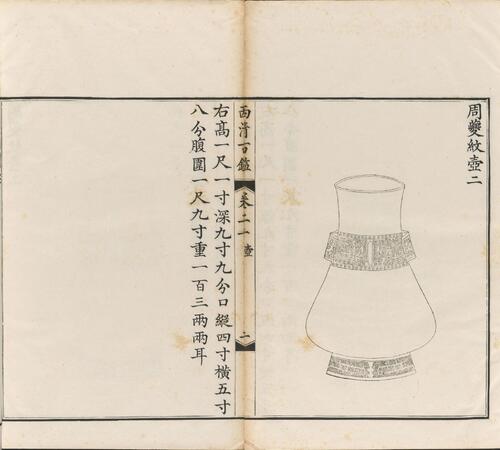 周夔紋壺二
西清古鑑
卷二一
壺
一
右高一尺一寸深九寸九分口縱四寸橫五寸
八分腹圍一尺九寸重一百三兩兩耳